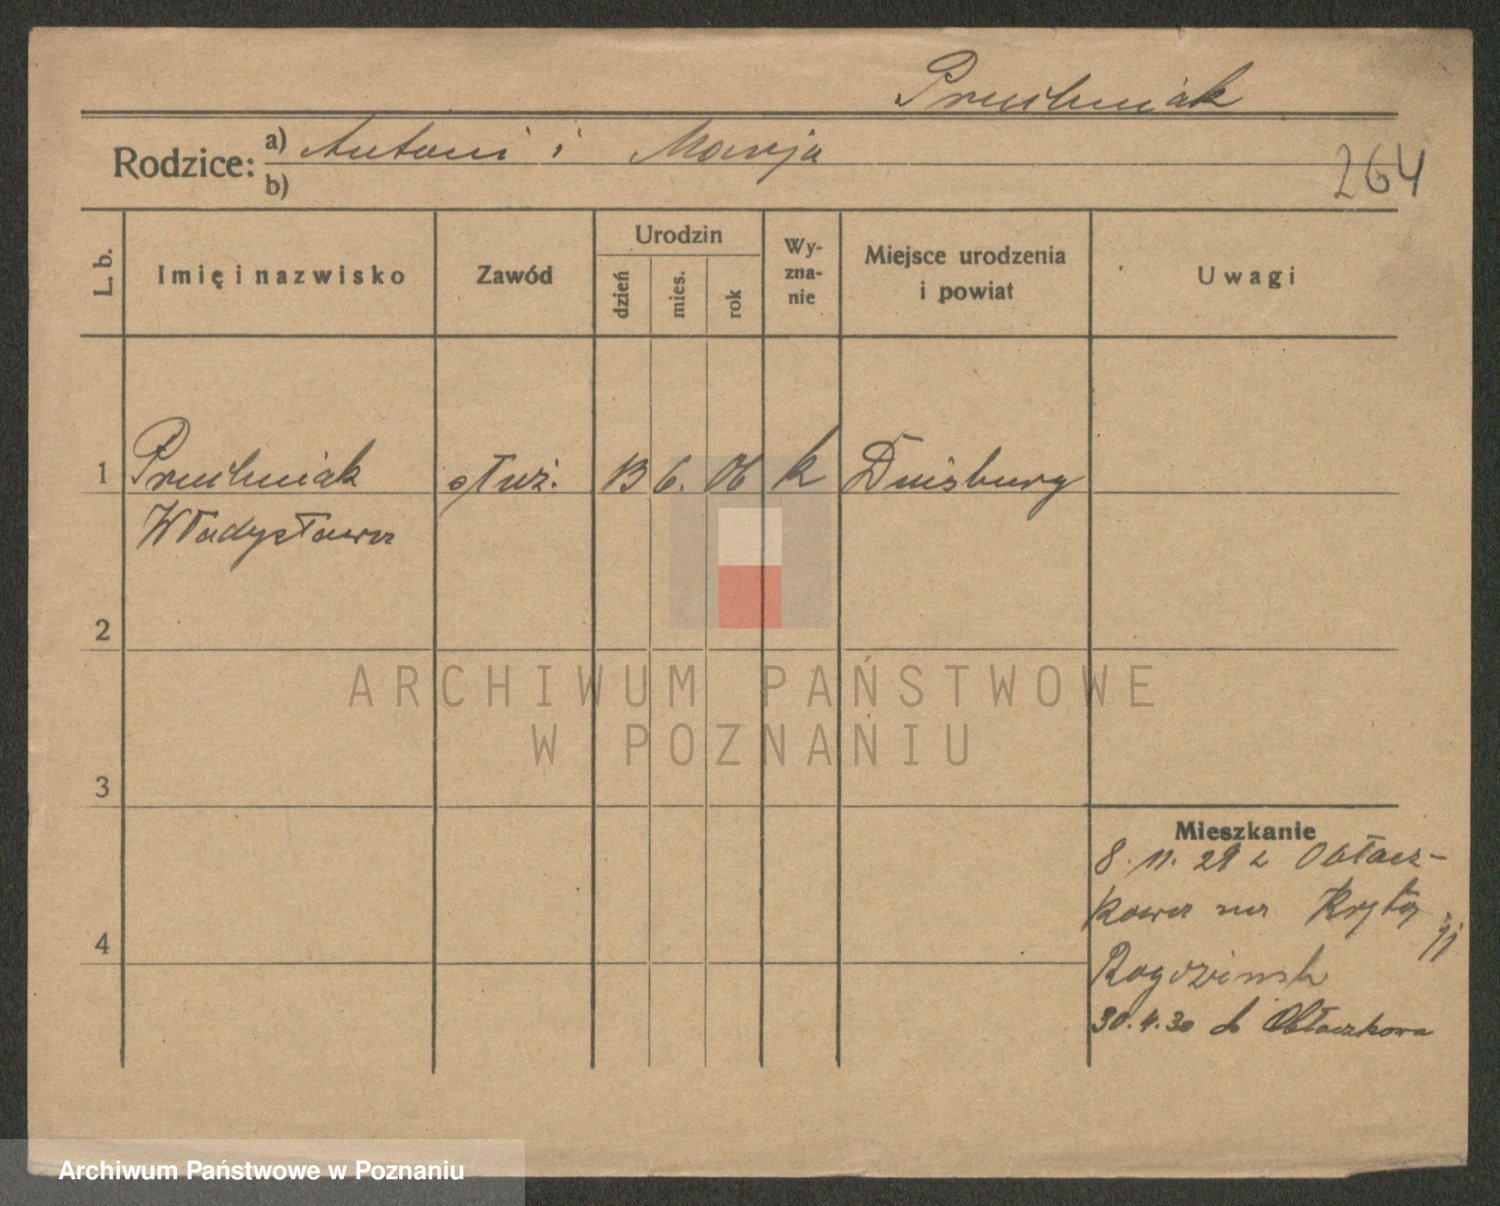 Pruchniak
Rodzice: a) Antoni i Marja
b)
264
L. b.
Imię i nazwisko
Zawód
Urodzin
dzień
mies.
rok
Wy-
zna-
nie
Miejsce urodzenia
i powiat
Uwagi
1 Pruchniak służ. 13 6. 06 k Duisburg
Władysława
2
3
4
Mieszkanie
8. 11. 29 z Obłacz-
kowa na
30. 4. 30 do Obłaczkowa
ARCHIWUM PAŃSTWOWE
W POZNANIU
Archiwum Państwowe w Poznaniu